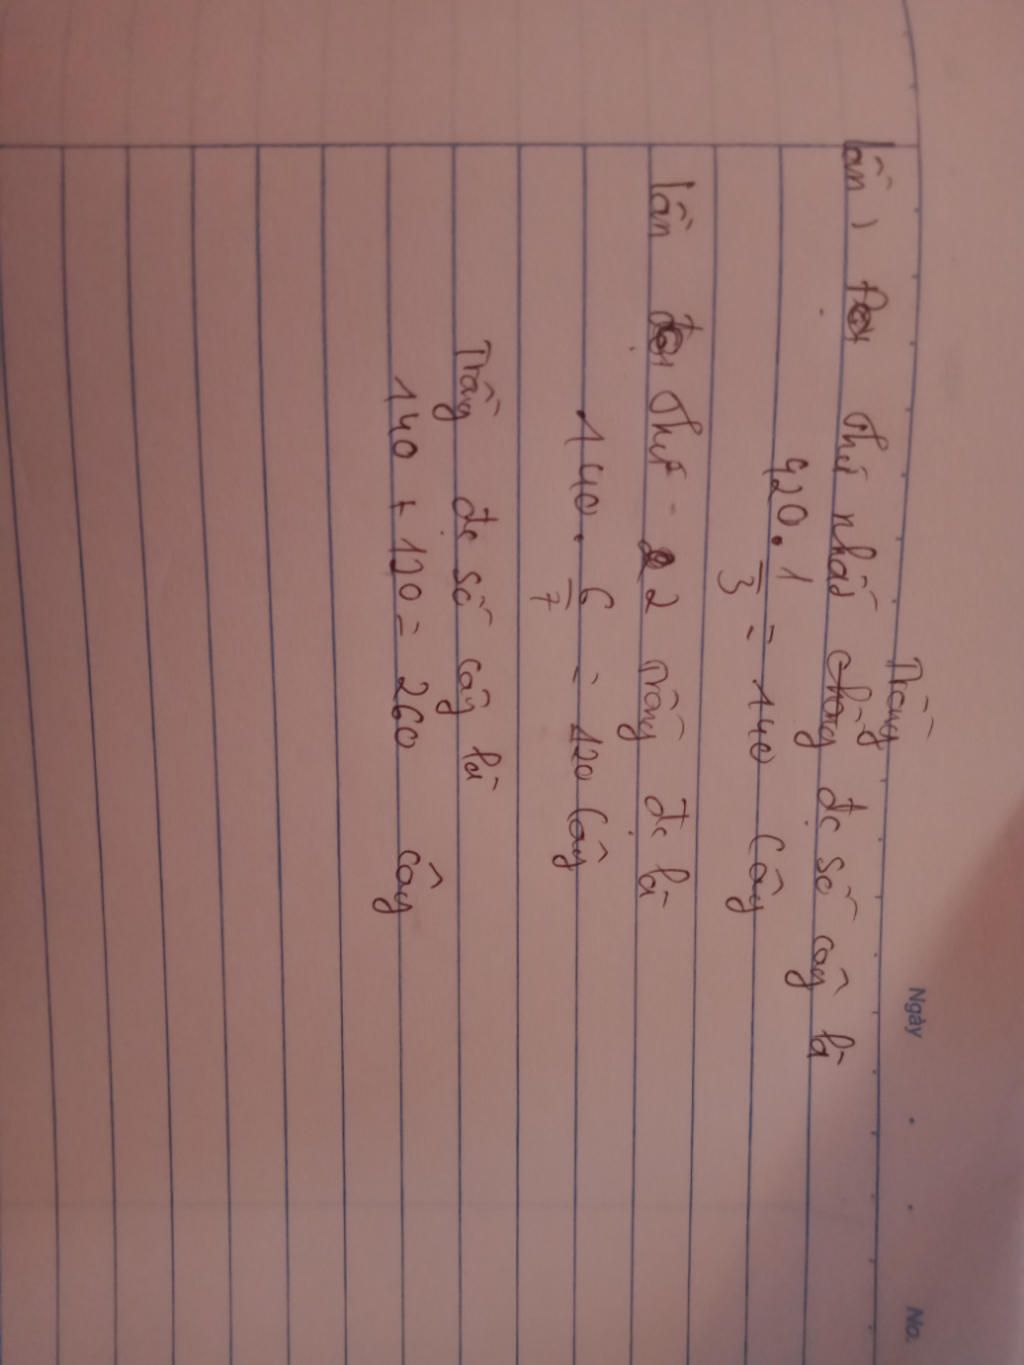 Ngày . . No.
Trồng
lần 1 đội thứ nhất đc số cây là
420 . 1/3 = 140 cây
lần đội thứ 2 trồng đc là
140 . 6/7 = 120 cây
Trồng đc số cây là
140 + 120 = 260 cây